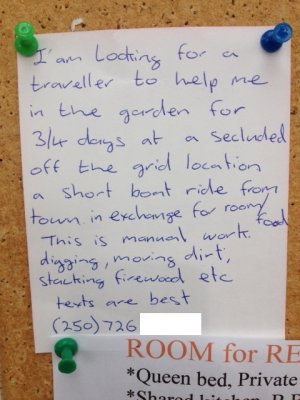 I'am Looking for a
traveller to help me
in the garden for
3/4 days at a secluded
off the grid location
a short boat ride from
town. in exchange for room/
food
This is manual work.
digging, moving dirt,
stacking firewood etc
texts are best
(250) 726
ROOM for RE
*Queen bed, Private
*Shared kitchen